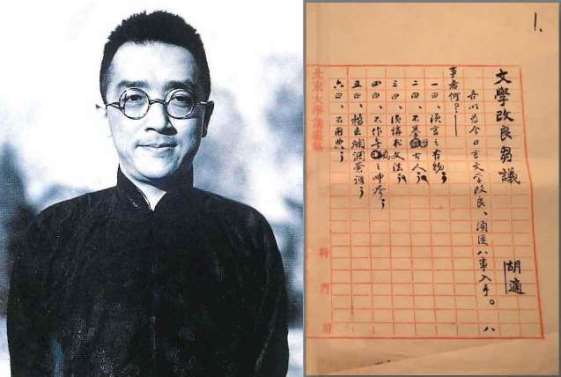 1.
文學改良芻議
胡適
吾以為今日言文學改良、須從八事入手。八
事者何？——
一曰、須言之有物；
二曰、不摹古人；
三曰、須講求文法；
四曰、不作無病之呻吟；
五曰、務去爛調套語；
六曰、不用典；
北京大學